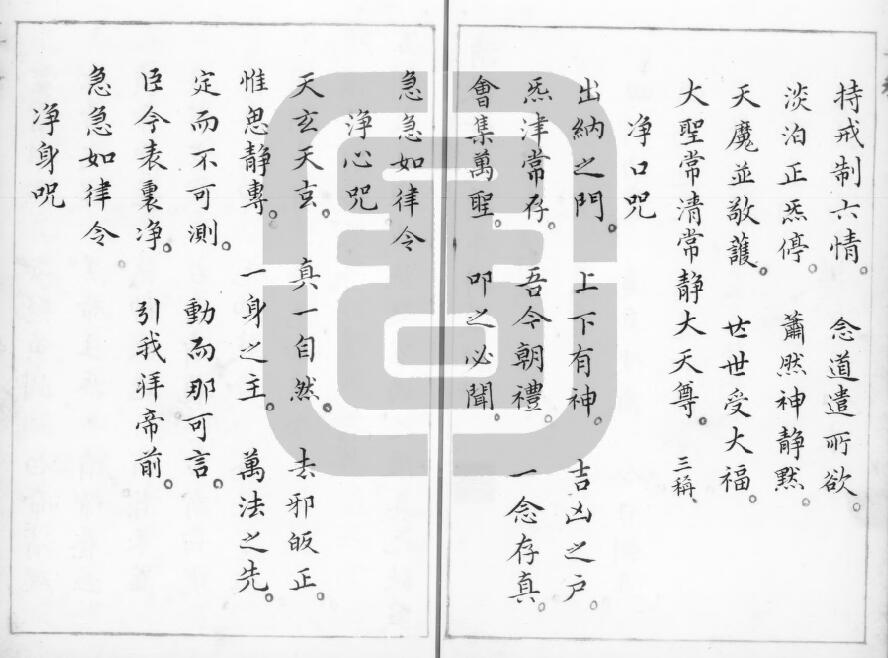 持戒制六情。念道遣所欲。
淡泊正炁停。蕭然神静默。
天魔並敬護。世世受大福。
大聖常清常静大天尊。三稱、
净口咒
出納之門。上下有神。吉凶之户。
炁津常存。吾今朝禮。一念存真。
會集萬聖。叩之必聞。
急急如律令
浄心咒
天玄天玄。真一自然。去邪皈正。
惟思静專。一身之主。萬法之先。
定而不可測。動而那可言。
臣今表裏净。引我拜帝前。
急急如律令。
净身咒